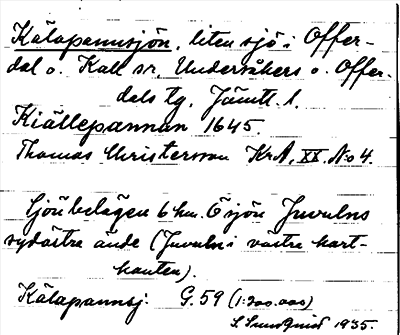 Kälapannsjön, liten sjö i Offer-
dal o. Kall sr, Undersåkers o. Offer-
dals tg, Jämtl. l.
Kiällepannan 1645.
Thomas Christersson KrA, XX. No 4.
Sjön belägen 6 km. Ö sjön Juvulns
sydöstra ände (Juvuln i västra kart-
kanten).
Kälapannsj. G. 59 (1:200.000)
S. Sundqvist 1935.